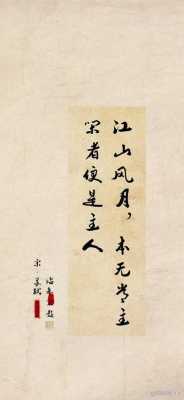 江山风月，本无常主
闲者便是主人
宋·苏轼